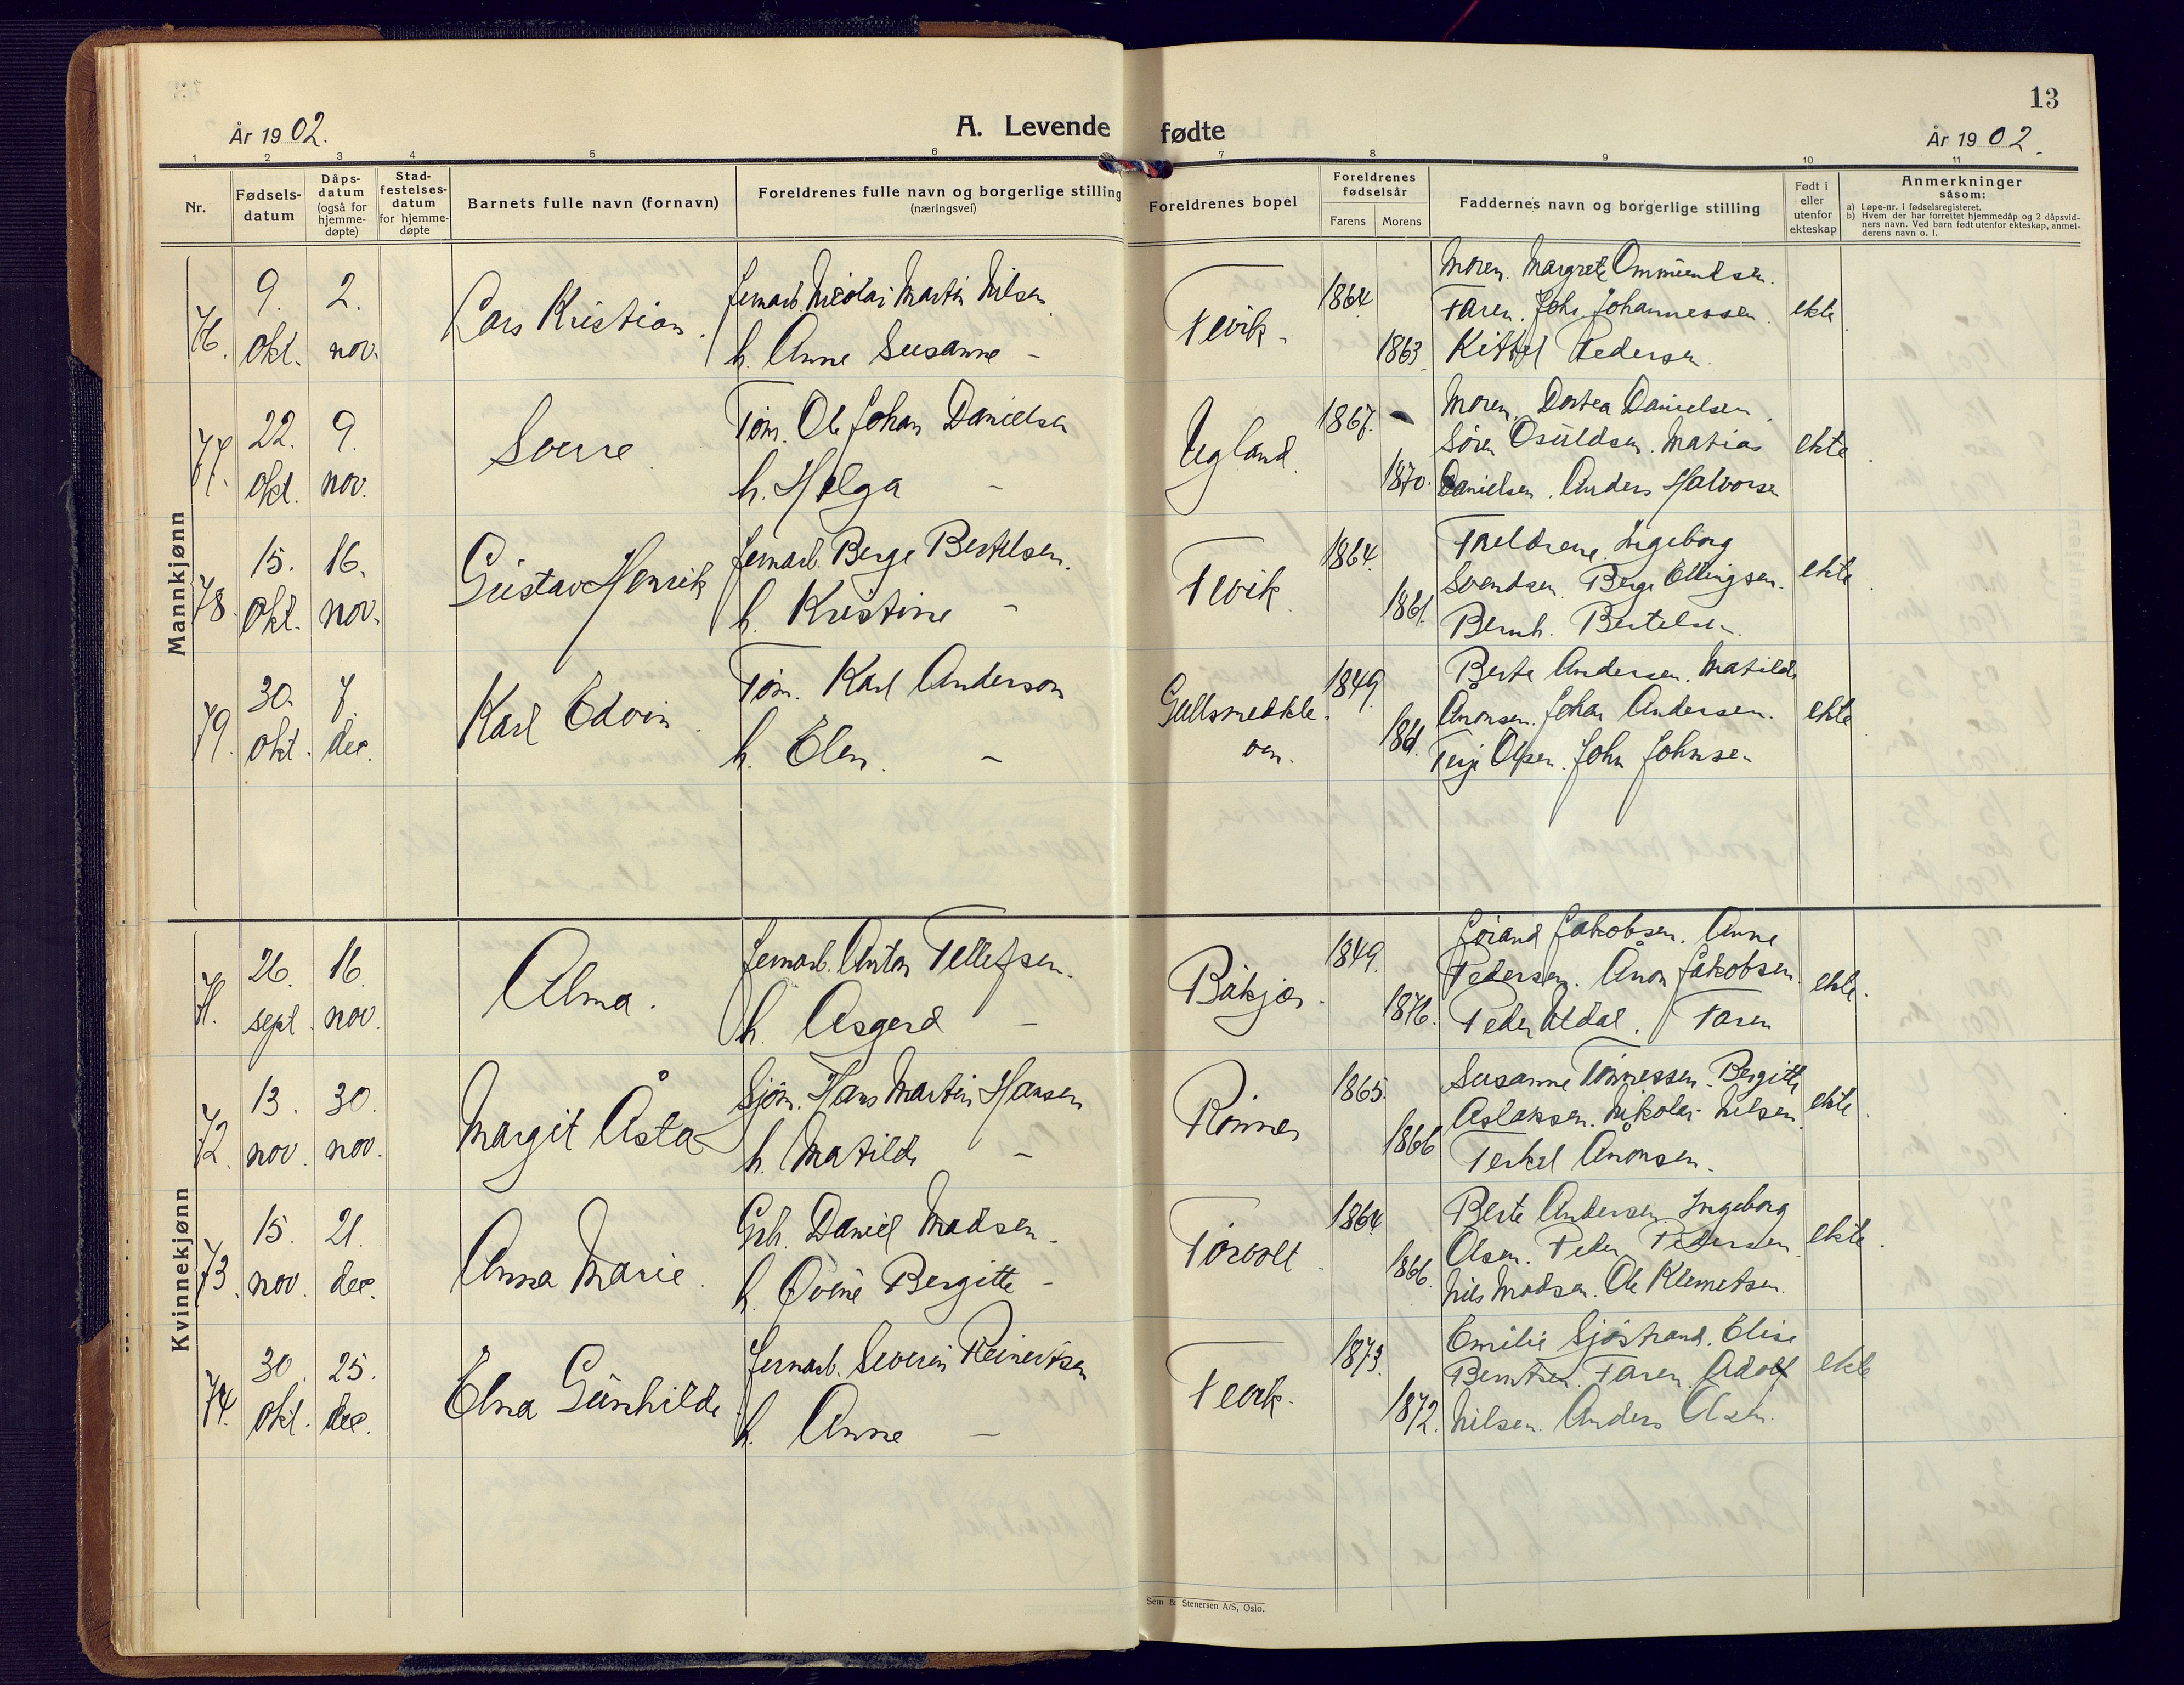 13
År 1902.
A. Levende fødte
År 1902.
1 2 3 4 5 6 7 8 9 10 11
Nr.
Fødsels-
datum
Dåps-
datum
(også for
hjemme-
døpte)
Stad-
festelses-
datum
for hjemme-
døpte
Barnets fulle navn (fornavn)
Foreldrenes fulle navn og borgerlige stilling
(næringsvei)
Foreldrenes bopel
Foreldrenes
fødselsår
Farens Morens
Faddernes navn og borgerlige stilling
Født i
eller
utenfor
ekteskap
Anmerkninger
såsom:
a) Løpe-nr. i fødselsregisteret.
b) Hvem der har forrettet hjemmedåp og 2 dåpsvid-
ners navn. Ved barn født utenfor ekteskap, anmel-
derens navn o. l.
Mannkjønn
76. 9. okt. 2. nov. Lars Kristian.
Jernarb. Nicolai Martin Nilsen
h. Anne Susanne –
Fevik. 1864 1863
Moren. Margrete Ommundsen.
Faren. Johs. Johannessen.
Kittel Pedersen.
ekte
77. 22. okt. 9. nov. Sverre
Tøm. Ole Johan Danielsen
h. Helga –
Ugland. 1867. 1870.
Moren. Dortea Danielsen.
Søren Osuldsen. Matias
Danielsen. Anders Halvorsen
ekte
78. 15. okt. 16. nov. Gustav Henrik
Jernarb. Berge Bertelsen.
h. Kristine –
Fevik 1864. 1861.
Foreldrene. Ingeborg
Svendsen. Berge Ellingsen.
Bernh. Bertelsen.
ekte
79. 30. okt. 7. dec. Karl Edvin
Tøm. Karl Anderson
h. Elen. –
Gullsmedkle-
ven. 1849. 1861.
Berte Andersen. Matilde
Ånonsen. Johan Andersen.
Terje Olsen. John Johnsen
ekte
Kvinnekjønn
71. 26. sept. 16. nov. Alma.
Jernarb. Anton Tellefsen.
h. Asgerd –
Båkjær. 1849. 1876.
Jørand Jakobsen. Anne
Pedersen. Ånon Jakobsen
Peder Uldal. Faren
ekte.
72. 13. nov. 30. nov. Margit Åsta
Sjøm. Hans Martin Hansen
h. Matilde –
Rønnes 1865. 1866
Susanne Tønnessen. Bergitte
Aslaksen. Nikolai Nilsen.
Terkel Ånonsen.
ekte
73. 15. nov. 21. dec. Anna Marie.
Grb. Daniel Madsen.
h. Bergitte –
Torvolt 1864 1866.
Berte Andersen. Ingeborg
Olsen. Peder Pedersen.
Nils Madsen. Ole Klemetsen.
ekte.
74. 30. okt. 25. dec. Elna Gunhilde
Jernarb. Severin Reinertsen
h. Anne –
Fevik. 1873. 1872.
Emilie Sjøstrand. Elise
Berntsen. Faren. Adolf
Nilsen. Anders Olsen.
ekte
Sem & Stenersen A/S, Oslo.